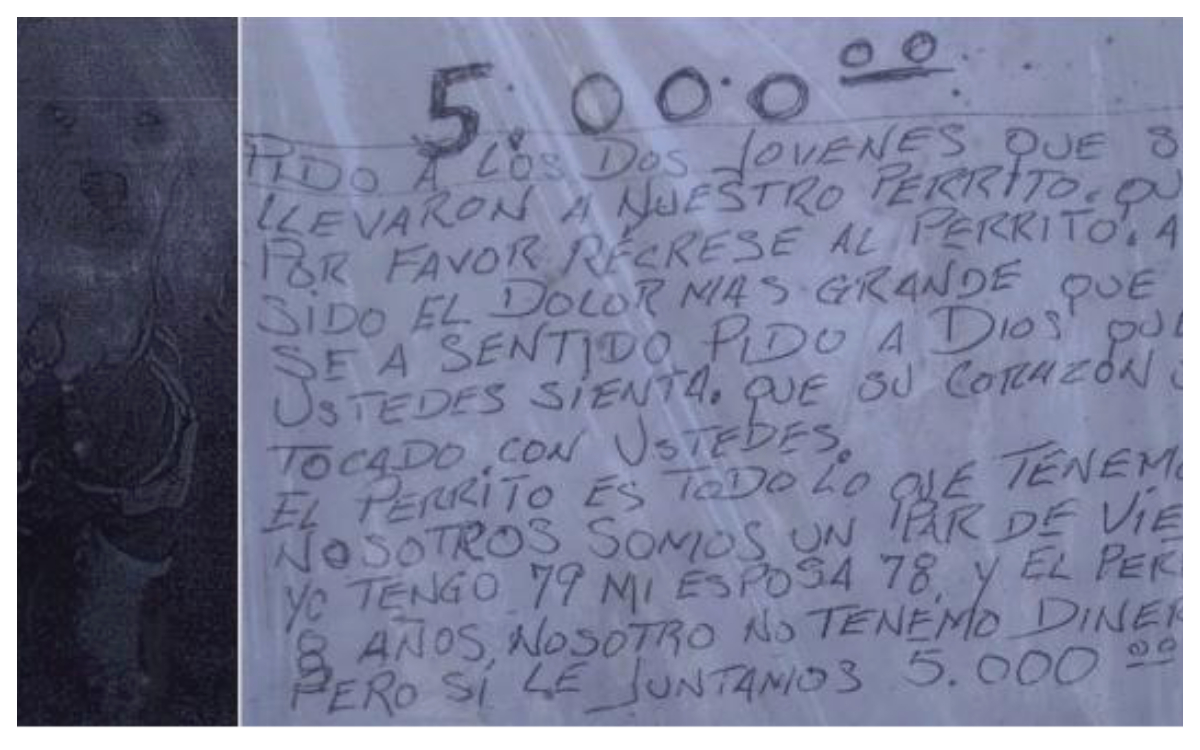 5.000.00
PIDO A LOS DOS JOVENES QUE S
LLEVARON A NUESTRO PERRITO. QU
POR FAVOR REGRESE AL PERRITO. A
SIDO EL DOLOR MAS GRANDE QUE
SE A SENTIDO PIDO A DIOS QUE
USTEDES SIENTA. QUE SU CORAZON S
TOCADO. CON USTEDES.
EL PERRITO ES TODO LO QUE TENEMO
NOSOTROS SOMOS UN PAR DE VIE
YO TENGO 79 MI ESPOSA 78, Y EL PERR
8 AÑOS, NOSOTRO NO TENEMO DINER
PERO SI LE JUNTAMOS 5.000 00